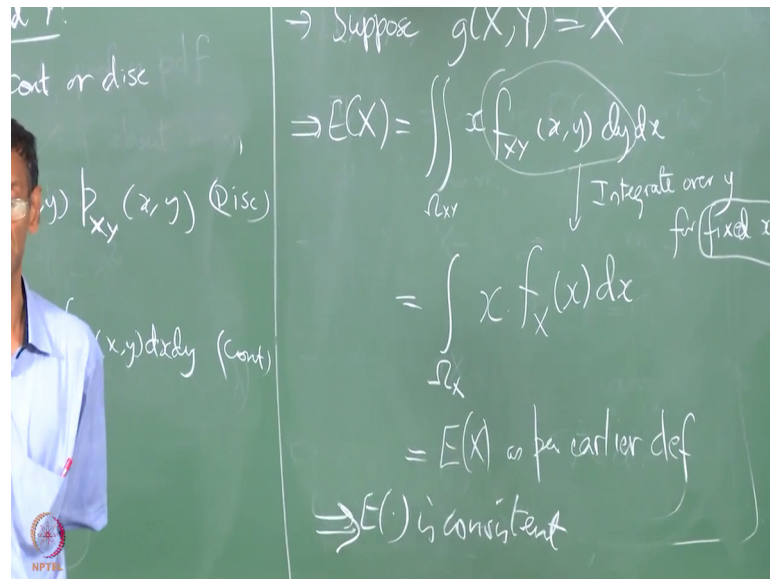 d Y:
Cont or disc
y) p_XY (x,y) (Disc)
(x,y)dxdy (Cont)
→ Suppose g(X,Y) = X
⇒ E(X) = ∬ x f_XY (x,y) dy dx
Ω_XY
↓ Integrate over y
for fixed x
= ∫ x. f_X(x) dx
Ω_X
= E(X) as per earlier def
⇒ E(.) is consistent
NPTEL